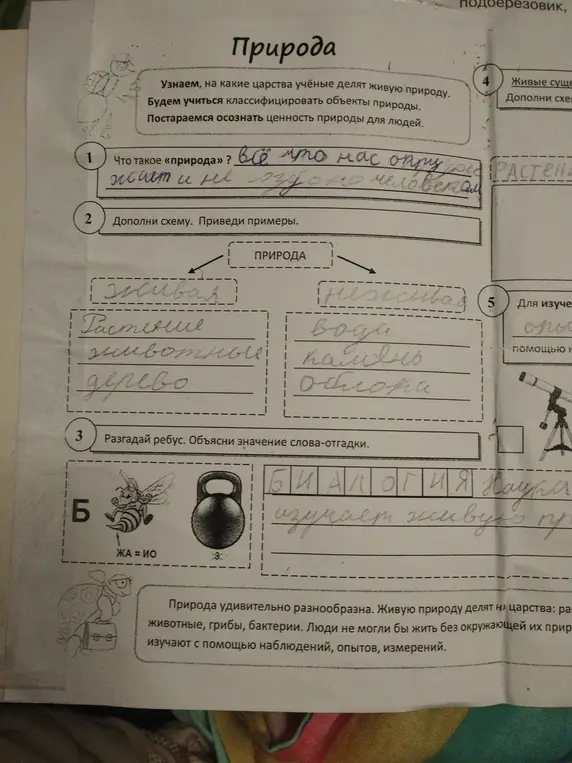 подберезовик,
Природа
Узнаем, на какие царства учёные делят живую природу.
Будем учиться классифицировать объекты природы.
Постараемся осознать ценность природы для людей.
4
Живые суще
Дополни схе
1
Что такое «природа» ? всё что нас окру
жает и не человеком
РАСТЕНИ
2
Дополни схему. Приведи примеры.
ПРИРОДА
живая
неживая
Растение
животные
дерево
вода
камень
облока
5
Для изуче
опы
помощью н
3
Разгадай ребус. Объясни значение слова-отгадки.
Б
ЖА = ИО
3
БИАЛОГИЯ Наука
изучает живую пр
Природа удивительно разнообразна. Живую природу делят на царства: ра
животные, грибы, бактерии. Люди не могли бы жить без окружающей их прир
изучают с помощью наблюдений, опытов, измерений.